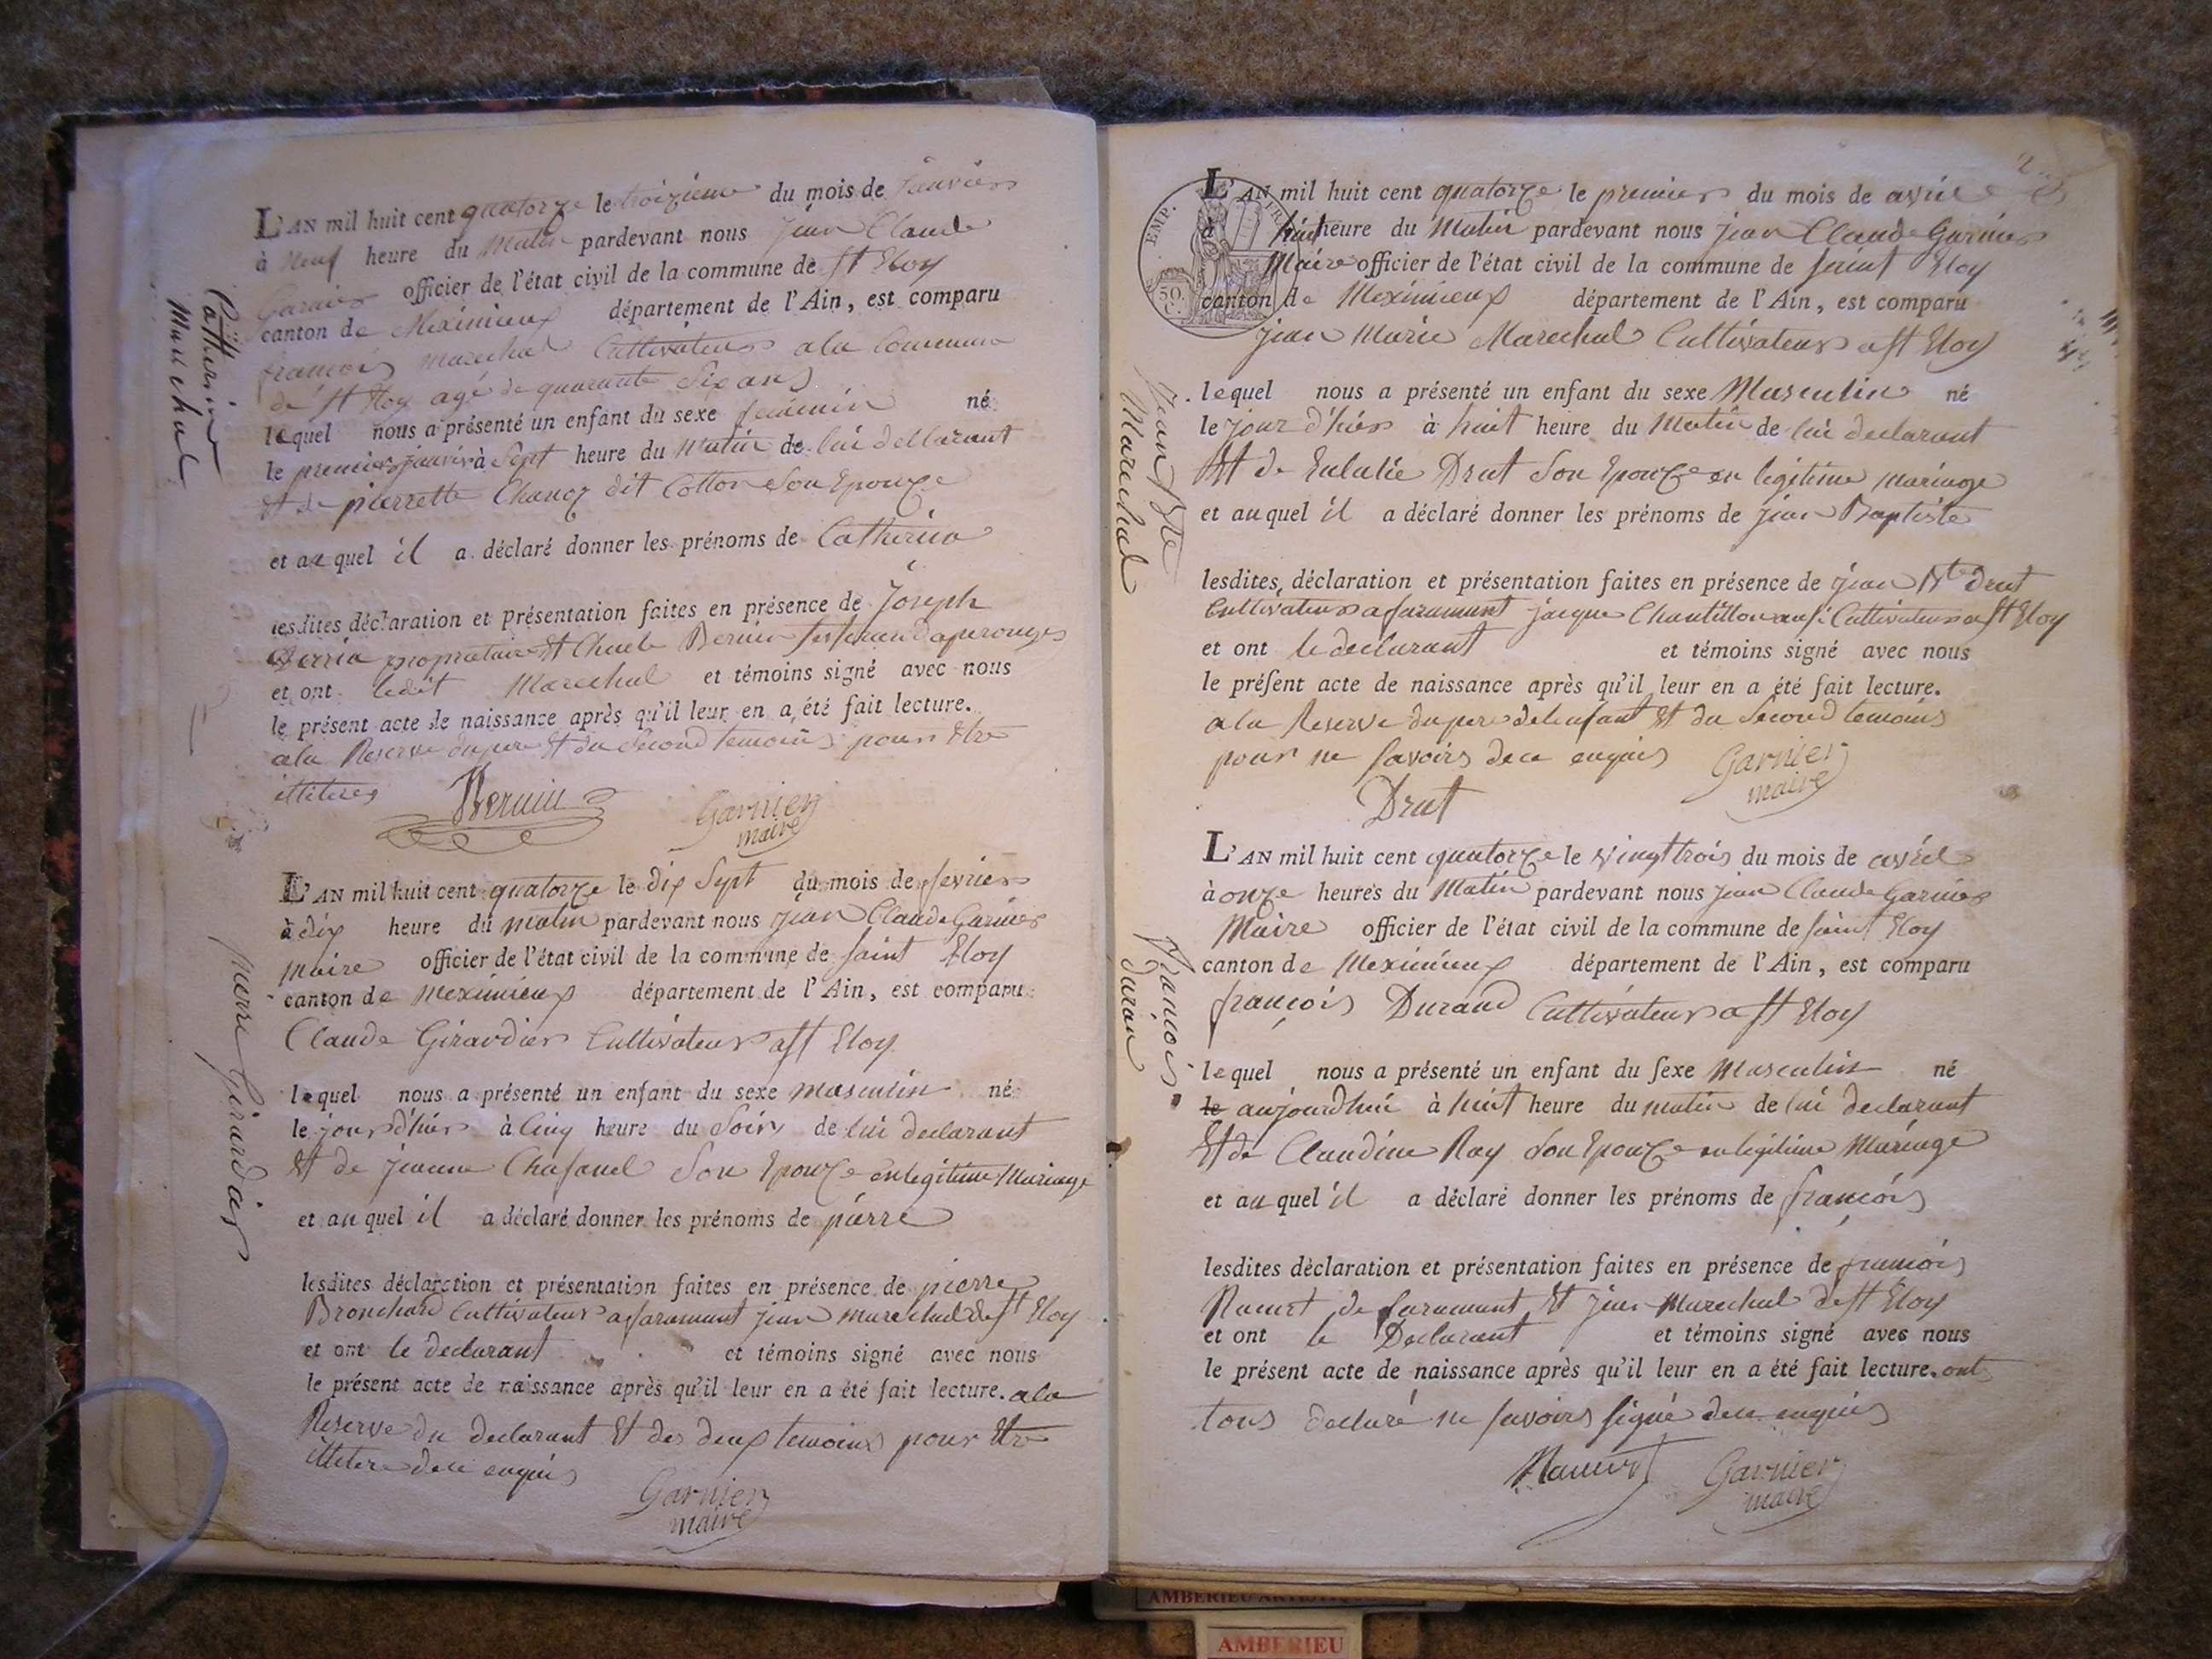 Catherin
Marechal
L'AN mil huit cent quatorze le troizieme du mois de janvier
à neuf heure du Matin pardevant nous jean Claude
Garnier officier de l'état civil de la commune de St Eloy
canton de Meximieux département de l'Ain, est comparu
francois marechal Cultivateur a la Commune
de St Eloy agé de quarante Six ans
lequel nous a présenté un enfant du sexe feminin né
le premier janvier à Sept heure du Matin de lui declarant
Et de pierrette Chanoz dit Cotton Son Epouze
et auquel il a déclaré donner les prénoms de Catherine
lesdites déclaration et présentation faites en présence de Joseph
proprietaire Et Charle Bernin
et ont ledit Marechal et témoins signé avec nous
le présent acte de naissance après qu'il leur en a été fait lecture.
a la Reserve du pere Et du Second temoins pour Etre
ittiteres
Bernin Garnier
maire
pierre Girardier
L'AN mil huit cent quatorze le dix Sept du mois de fevrier
à dix heure du matin pardevant nous jean Claude Garnier
maire officier de l'état civil de la commune de saint Eloy
canton de Meximieux département de l'Ain, est comparu
Claude Girardier Cultivateur a St Eloy
lequel nous a présenté un enfant du sexe masculin né
le jour d'hier à Cinq heure du Soir de lui declarant
Et de jeanne Chafanel Son Epouze en legitime Mariage
et auquel il a déclaré donner les prénoms de pierre
lesdites déclaration et présentation faites en présence de pierre
Bronchard Cultivateur a faramant jean marechal de St Eloy
et ont le declarant et témoins signé avec nous
le présent acte de naissance après qu'il leur en a été fait lecture. a la
Reserve du declarant Et des deux temoins pour Etre
ittitere de ce enquis
Garnier
maire
EMP. FR
50 C.
L'AN mil huit cent quatorze le premier du mois de avril
à huit heure du Matin pardevant nous jean Claude Garnier
Maire officier de l'état civil de la commune de saint Eloy
canton de Meximieux département de l'Ain, est comparu
jean Marie Marechal Cultivateur a St Eloy
Jean Bte
Marechal
lequel nous a présenté un enfant du sexe Masculin né
le jour d'hier à huit heure du Matin de lui declarant
Et de Eulalie Drut Son Epouze en legitime mariage
et auquel il a déclaré donner les prénoms de jean Baptiste
lesdites déclaration et présentation faites en présence de jean Bte Drut
Cultivateur a faramant jacque Chantillon ausi Cultivateur a St Eloy
et ont le declarant et témoins signé avec nous
le présent acte de naissance après qu'il leur en a été fait lecture.
a la Reserve du pere de lenfant Et du Second temoins
pour ne savoirs de ce enquis Garnier
maire
Drut
L'AN mil huit cent quatorze le vingt trois du mois de avril
à onze heures du Matin pardevant nous jean Claude Garnier
Maire officier de l'état civil de la commune de saint Eloy
canton de Meximieux département de l'Ain, est comparu
françois Durand Cultivateur a St Eloy
françois
duran
lequel nous a présenté un enfant du sexe Masculin né
le aujourdhui à huit heure du matin de lui declarant
Et de Claudine Ray Son Epouze en legitime Mariage
et auquel il a déclaré donner les prénoms de françois
lesdites déclaration et présentation faites en présence de françois
de faramant Et jean Marechal de St Eloy
et ont le Declarant et témoins signé avec nous
le présent acte de naissance après qu'il leur en a été fait lecture. ont
tous declaré ne savoirs signé de ce enquis
Garnier
maire
AMBERIEU
AMBERIEU